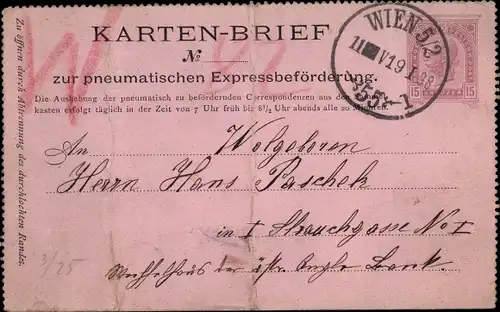 KARTEN-BRIEF
No
zur pneumatischen Expressbeförderung.
Die Aushebung der pneumatisch zu befördernden Correspondenzen aus den
kasten erfolgt täglich in der Zeit von 7 Uhr früh bis 8½ Uhr abends alle 20 Minuten.
Zu öffnen durch Abtrennung des durchlochten Randes.
WIEN 5/2
15 15
An Wolgeboren
Herrn Hans Paschek
in I Strauchgasse No I
Wechselhaus der öst. Anglo Bank.
3/25